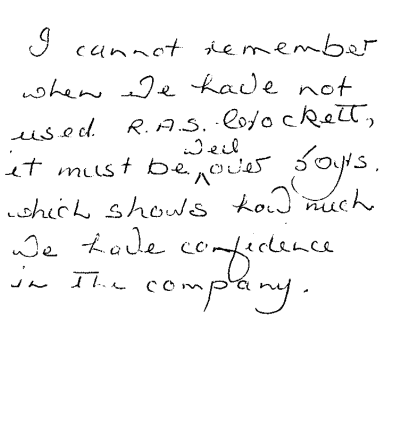 I cannot remember
when we have not
used R.A.S.
it must be well over 50yrs.
which shows how much
we have confidence
in the company.